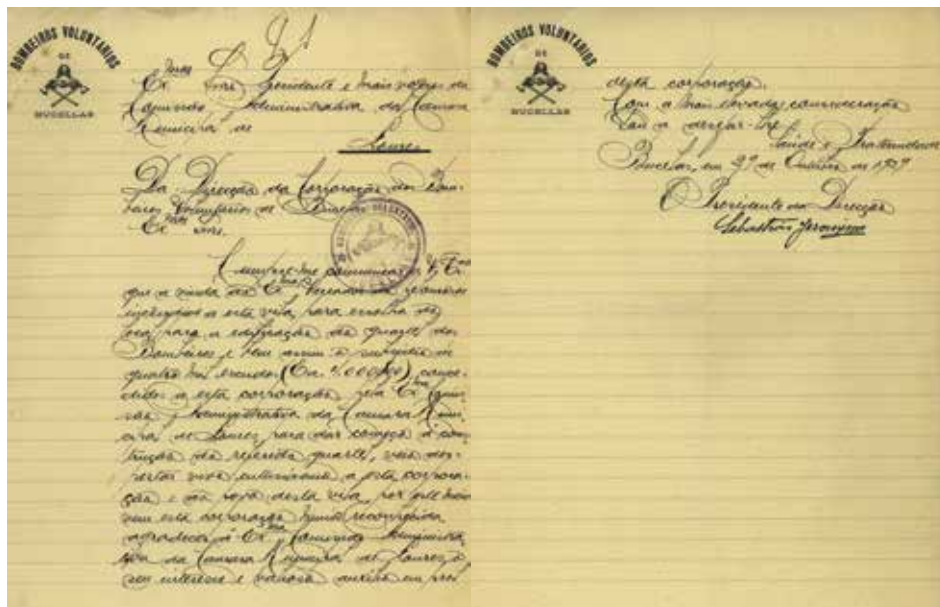 BOMBEIROS VOLUNTARIOS
DE
BUCELLAS
Ex.mos Snrs Presidente e mais vogaes da
Comissão Administrativa da Camara
Municipal de
Loures
Da Direcção da Corporação dos Bom-
beiros Voluntarios de Bucelas
Ex.mos Snrs.
Cumpre-me communicar a V. Ex.as
que a vinda do Ex.mo Vereador
a esta vila, para escolha do
local para a edificação do quartel dos
Bombeiros e bem assim o subsidio de
quatro mil escudos (Esc. 4.000$00) conce-
didos a esta corporação pela Ex.ma Comis-
são Administrativa da Camara Muni-
cipal de Loures para dar começo á cons-
trução do referido quartel, veio des-
pertar vivo enthusiasmo a esta corpora-
ção e ao povo desta vila, por
vem esta corporação muito reconhecida
agradecer á Ex.ma Comissão Administra-
tiva da Camara Municipal de Loures, o
seu interesse e valioso auxilio em prol
BOMBEIROS VOLUNTARIOS
DE
BUCELLAS
desta corporação.
Com a mais elevada consideração
Saude e Fraternidade
Bucelas, em 9 de Outubro de 1929
O Presidente da Direcção
Sebastião Jeronymo